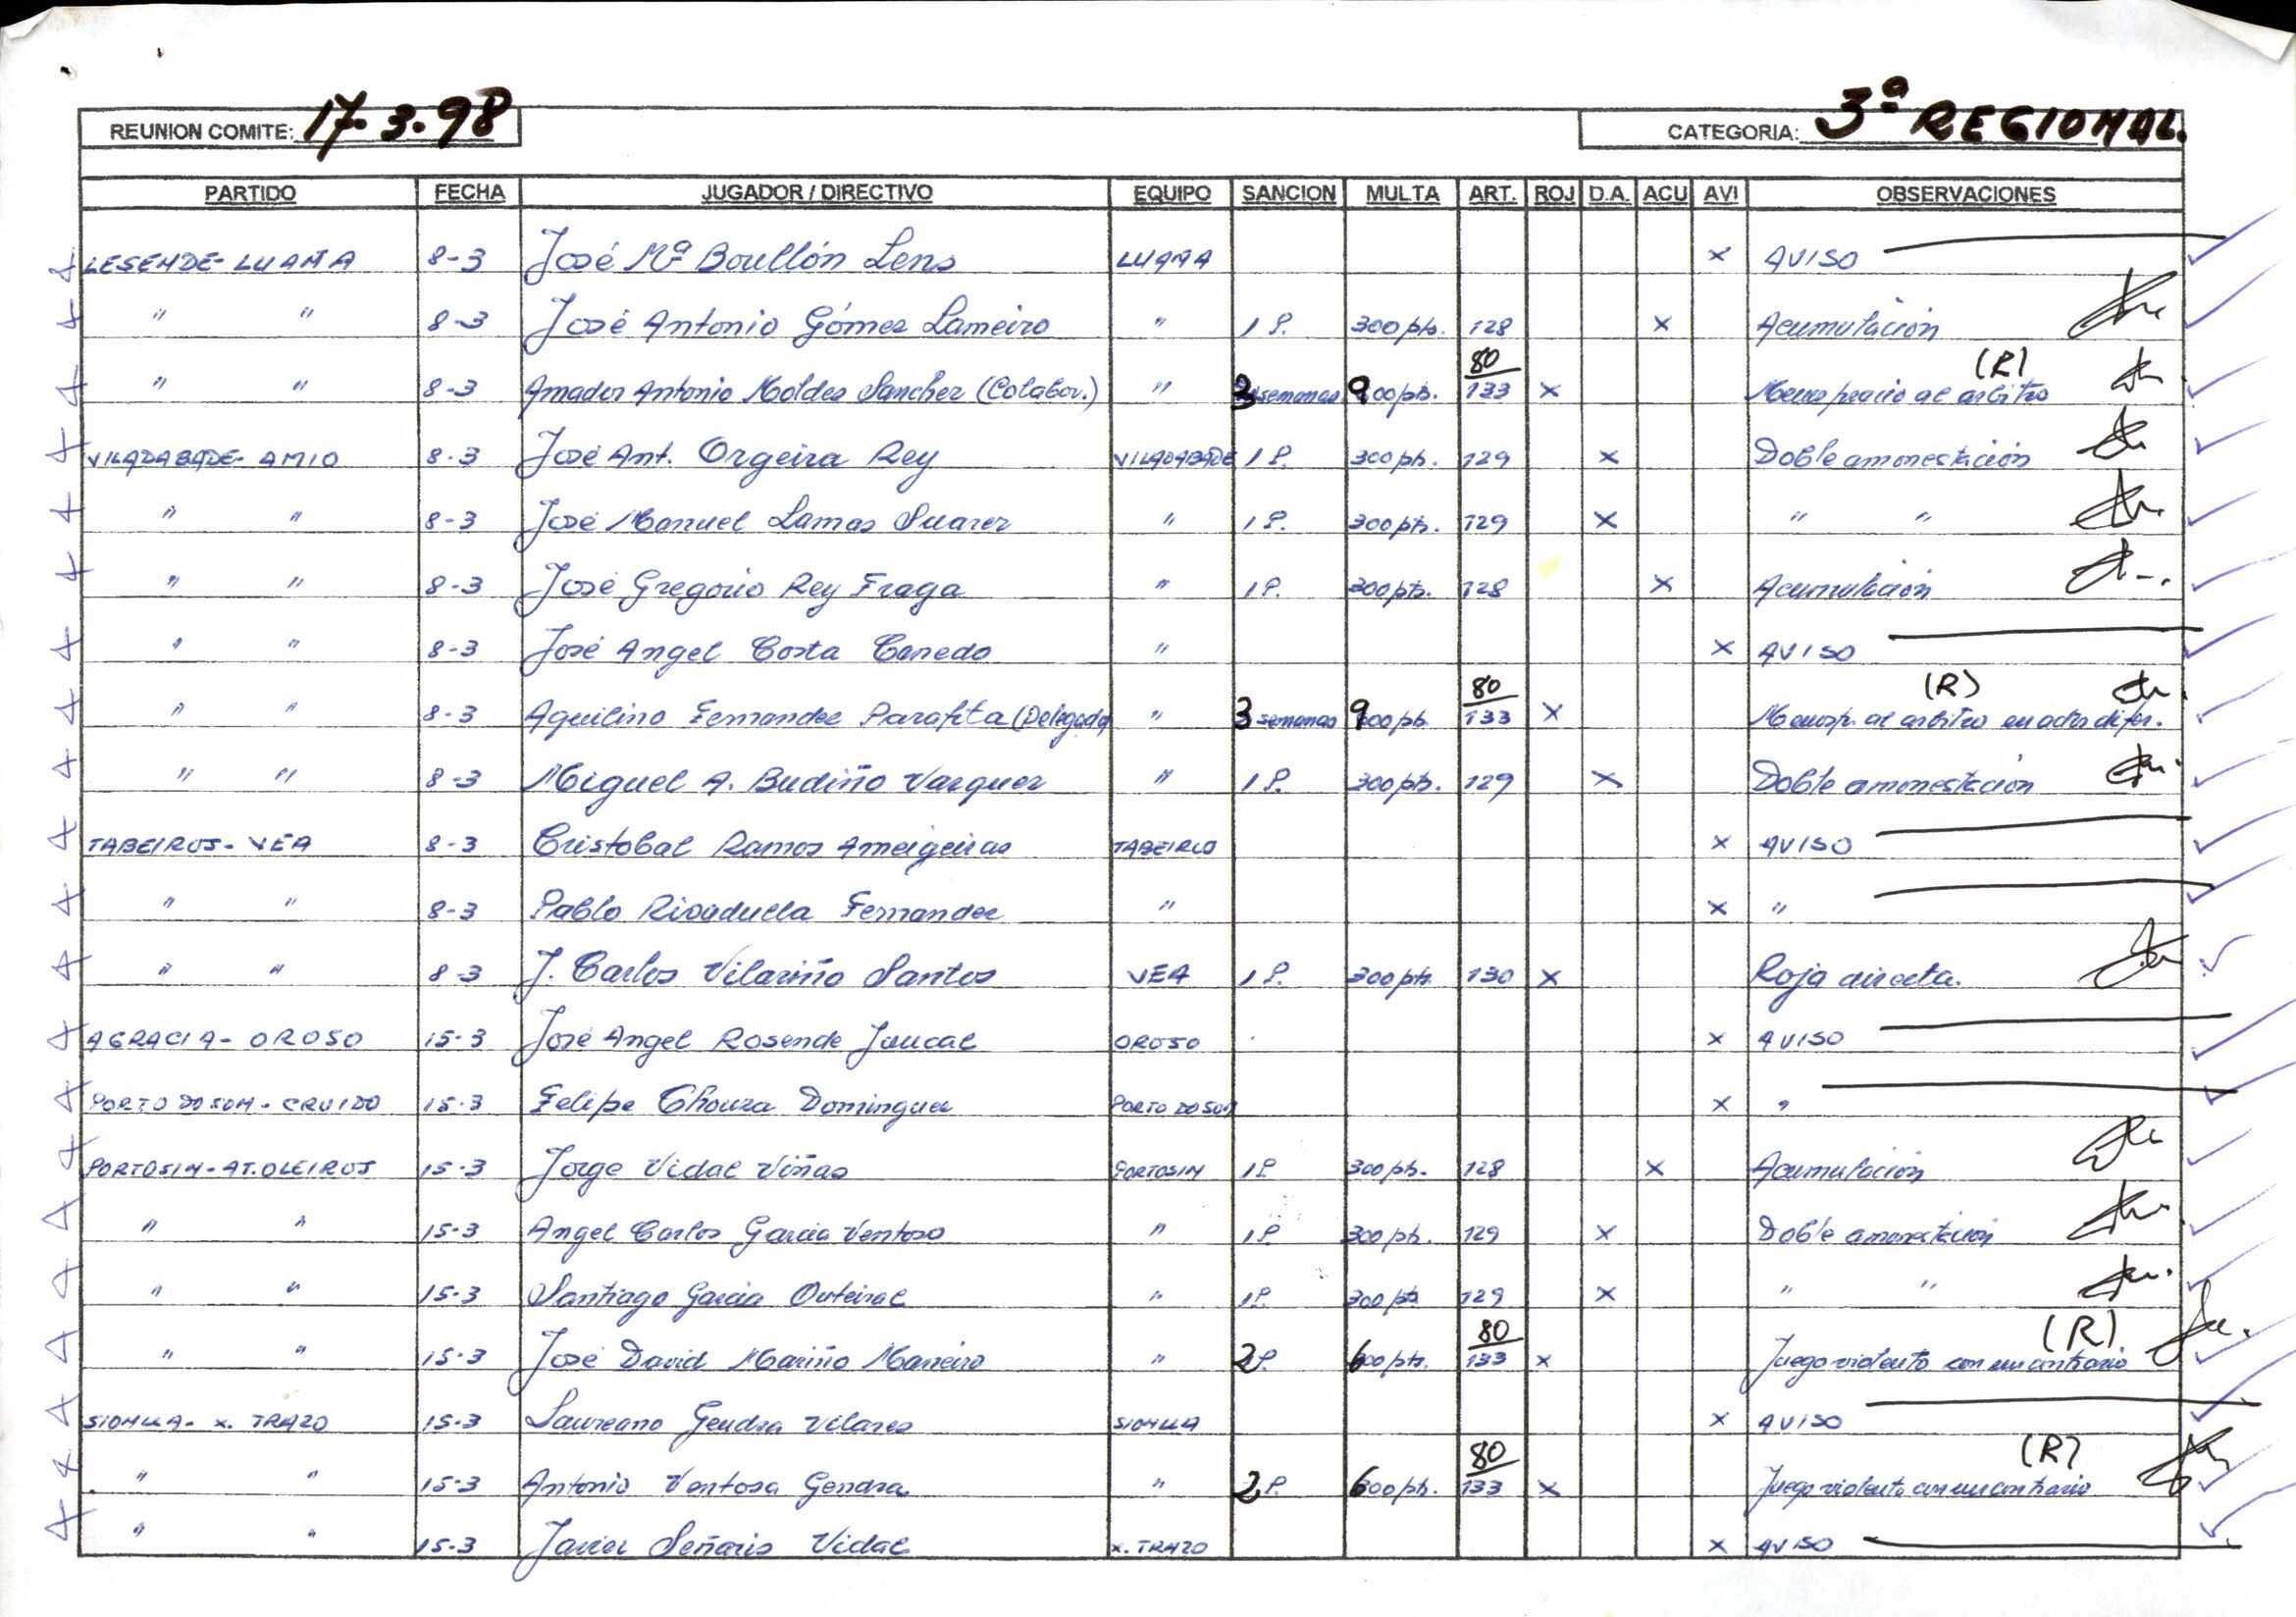 REUNION COMITE: 17-3-98 CATEGORIA: 3ª REGIONAL.
PARTIDO FECHA JUGADOR / DIRECTIVO EQUIPO SANCION MULTA ART. ROJ D.A. ACU AVI OBSERVACIONES
LESENDE- LUAÑA 8-3 José Mª Boullón Lens LUAÑA x AVISO
" " 8-3 José Antonio Gómez Lameiro " 1 P. 300 pts. 128 x Acumulación
" " 8-3 Amador Antonio Moldes Sanchez (Colabor.) " 3 semanas 900 pts. 80 133 x Menosprecio al arbitro (R)
VILADABADE- AMIO 8-3 José Ant. Orgeira Rey VILADABADE 1 P. 300 pts. 129 x Doble amonestación
" " 8-3 José Manuel Lamas Suarez " 1 P. 300 pts. 129 x " "
" " 8-3 José Gregorio Rey Fraga " 1 P. 300 pts. 128 x Acumulación
" " 8-3 José Angel Costa Canedo " x AVISO
" " 8-3 Aquilino Fernandez Parafita (Delegado) " 3 semanas 900 pts. 80 133 x Menosp. al arbitro en acta difer. (R)
" " 8-3 Miguel A. Budiño Vazquez " 1 P. 300 pts. 129 x Doble amonestación
TABEIROS- VEA 8-3 Cristobal Ramos Ameigeiras TABEIROS x AVISO
" " 8-3 Pablo Fernandez " x "
" " 8-3 J. Carlos Vilariño Santos VEA 1 P. 300 pts. 130 x Roja directa.
AGRACIA- OROSO 15-3 José Angel Rosende OROSO x AVISO
PORTO DO SON- CRUIDO 15-3 Felipe Chouza Dominguez PORTO DO SON x "
PORTOSIN- AT. OLEIROS 15-3 Jorge Vidal Viñas PORTOSIN 1 P. 300 pts. 128 x Acumulación
" " 15-3 Angel Carlos Garcia Ventoso " 1 P. 300 pts. 129 x Doble amonestación
" " 15-3 Santiago Garcia Outeiral " 1 P. 300 pts 129 x " "
" " 15-3 José David Mariño Maneiro " 2 P. 600 pts. 80 133 x Juego violento con un contrario (R)
SIONLLA- X. TRAZO 15-3 Laureano Gendra Vilares SIONLLA x AVISO
" " 15-3 Antonio Ventosa Gendra " 2 P. 600 pts. 80 133 x Juego violento con un contrario (R)
" " 15-3 Javier Señaris Vidal X. TRAZO x AVISO